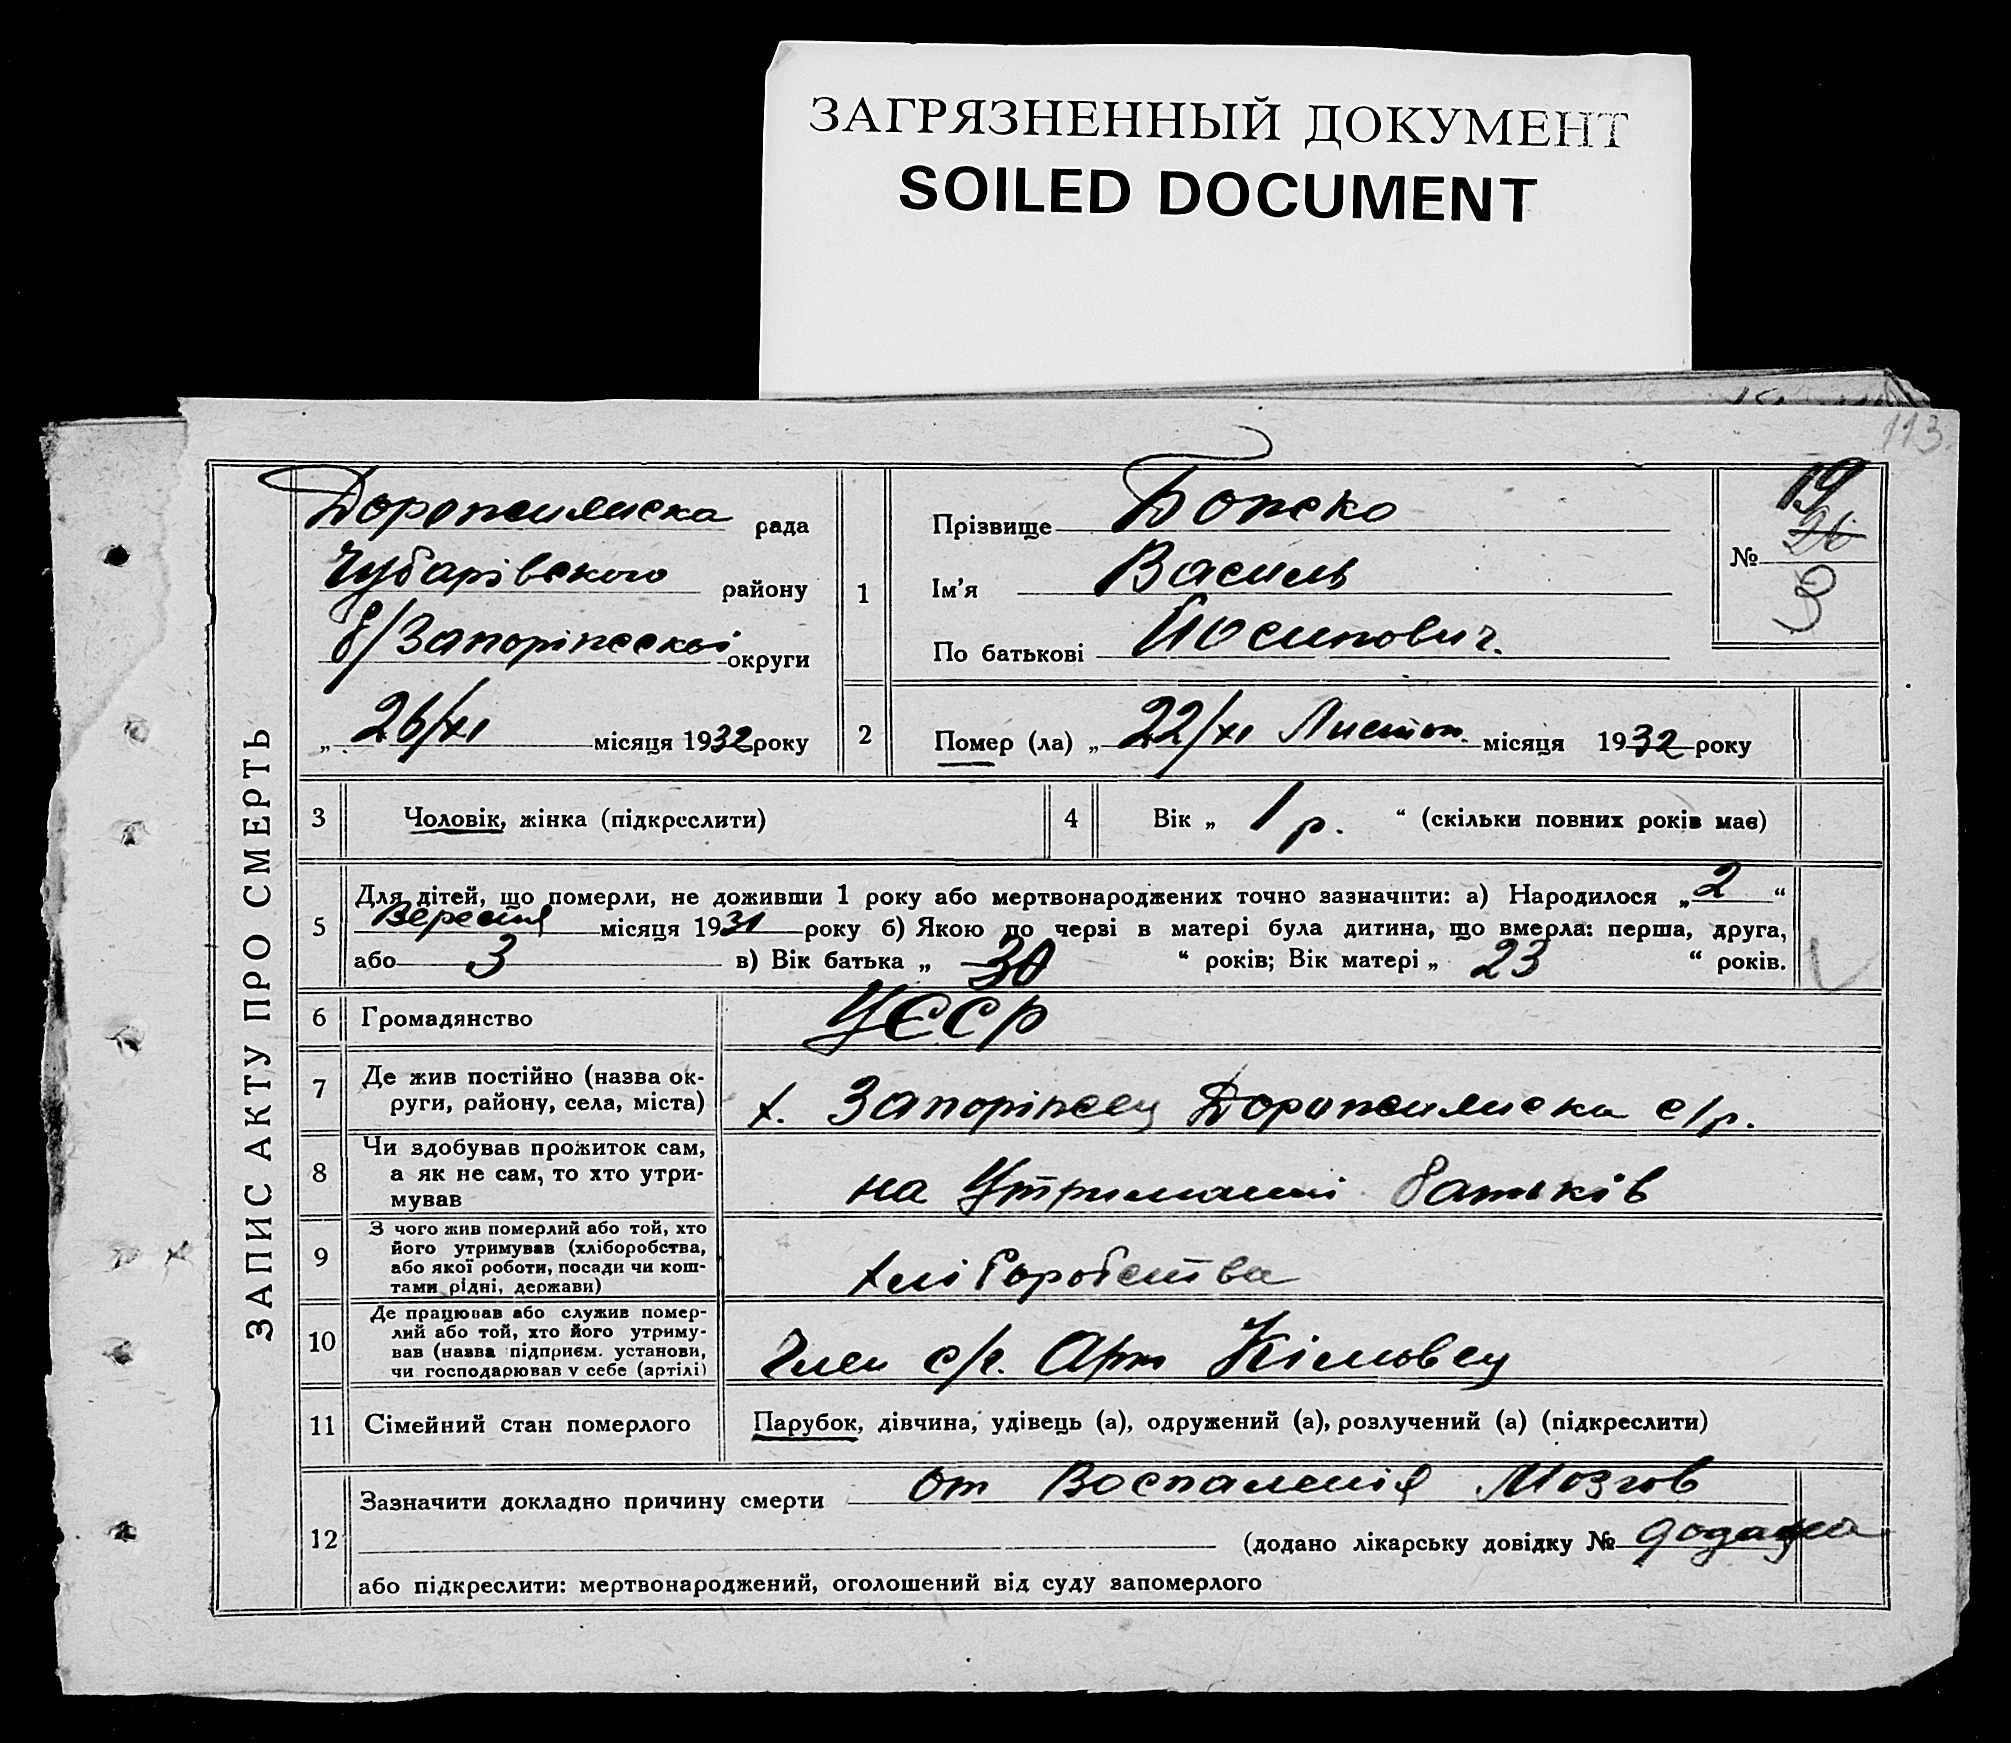 ЗАГРЯЗНЕННЫЙ ДОКУМЕНТ
SOILED DOCUMENT
113
ЗАПИС АКТУ ПРО СМЕРТЬ
Дорожилиска рада
Чубарівського району
б/Запоріжської округи
„ 26/XI місяця 1932 року
1
Прізвище Божко
Ім’я Василь
По батькові Йосипович.
19
№ 26
3
2
Помер (ла) „ 22/XI Листоп. місяця 1932 року
3 Чоловік, жінка (підкреслити)
4 Вік „ 1 р. “ (скільки повних років має)
5
Для дітей, що померли, не доживши 1 року або мертвонароджених точно зазначити: а) Народилося „ 2 “
Вересня місяця 1931 року б) Якою по черзі в матері була дитина, що вмерла: перша, друга,
або 3 в) Вік батька „ 30 “ років; Вік матері „ 23 “ років.
6 Громадянство УССР
7 Де жив постійно (назва ок-
руги, району, села, міста)
х. Запоріжец Дорожилиска с/р.
8 Чи здобував прожиток сам,
а як не сам, то хто утри-
мував
на Утриманні батьків
9 З чого жив померлий або той, хто
його утримував (хліборобства,
або якої роботи, посади чи кош-
тами рідні, держави)
хліборобства
10 Де працював або служив помер-
лий або той, хто його утриму-
вав (назва підприєм. установи,
чи господарював у себе (артілі)
Член с/г. Арт
11 Сімейний стан померлого Парубок, дівчина, удівець (а), одружений (а), розлучений (а) (підкреслити)
12 Зазначити докладно причину смерти от Воспаленія Мозгов
(додано лікарську довідку №
або підкреслити: мертвонароджений, оголошений від суду запомерлого